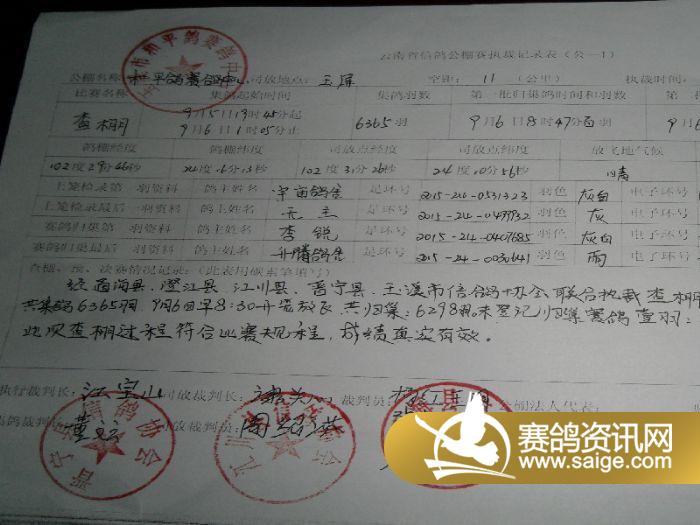 云南省信鸽公棚赛执裁记录表（公—1）
公棚名称 和平鸽赛鸽中心 司放地点： 玉屏 空距： 11 （公里） 执裁时间：
比赛名称 集鸽起始时间 集鸽羽数 第一批归巢鸽时间和羽数 第
查棚 9月5日19时45分起 6365羽 9月6日8时47分 羽
9月6日1时05分止
鸽棚经度 鸽棚纬度 司放点经度 司放点纬度 放飞地气候
102度29分46秒 24度 分 秒 102度3 分26秒 24度 0分56秒 晴
上笼检录第一羽资料 鸽主姓名 宇宙鸽舍 足环号 2015-24-0531323 羽色 灰白 电子环号
上笼检录最后一羽资料 鸽主姓名 足环号 羽色 灰 电子环号
赛鸽归巢第一羽资料 鸽主姓名 李锐 足环号 2015-24-0407685 羽色 灰白 电子环号
赛鸽归巢最后一羽资料 鸽主姓名 升腾鸽舍 足环号 2015-24-0030641 羽色 雨 电子环号
查棚、预、决赛情况记录：（此表用碳素笔填写）
经通海县、澄江县、江川县、晋宁县、玉溪市信鸽协会联合执裁查棚
共集鸽6365羽，9月6日早8:30开笼放飞，共归巢：6298羽未登记归巢赛鸽壹羽：
此次查棚过程符合比赛规程，成绩真实有效。
执行裁判长： 江宝山 司放裁判长： 裁判员： 公棚法人代表：
集鸽裁判员： 司放裁判员： 周绍英
和平鸽赛鸽中心
晋宁县信鸽协会
江川 信鸽协会
赛鸽资讯网
www.saige.com